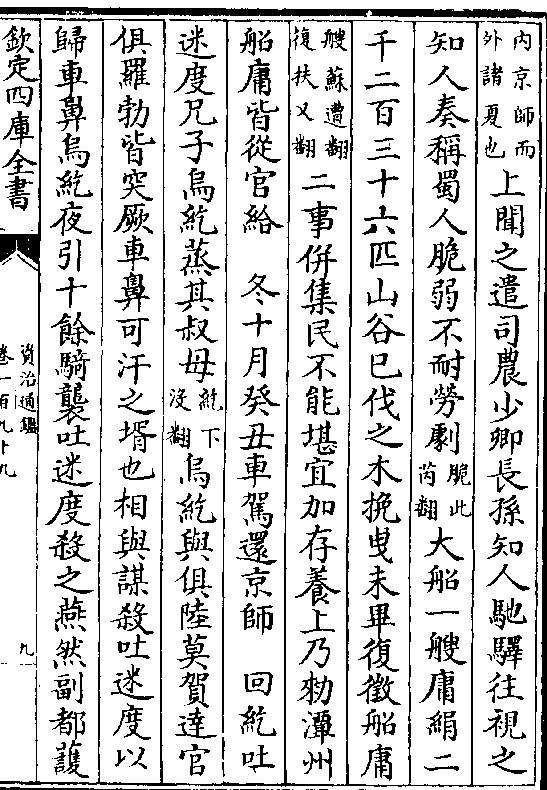 内京師而外諸夏也上聞之遣司農少卿長孫知人馳驛往視之
知人奏稱蜀人脆弱不耐勞劇脆此芮翻大船一艘庸絹二
千二百三十六匹山谷已伐之木挽曳未畢復徴船庸
艘蘇遭翻復扶又翻二事併集民不能堪宜加存養上乃勑潭州
船庸皆從官給　冬十月癸丑車駕還京師　回紇吐
迷度兄子烏紇蒸其叔母紇下没翻烏紇與俱陸莫賀達官
俱羅勃皆突厥車鼻可汗之壻也相與謀殺吐迷度以
歸車鼻烏紇夜引十餘騎襲吐迷度殺之燕然副都䕶
欽定四庫全書
資治通鑑
卷一百九十九
九